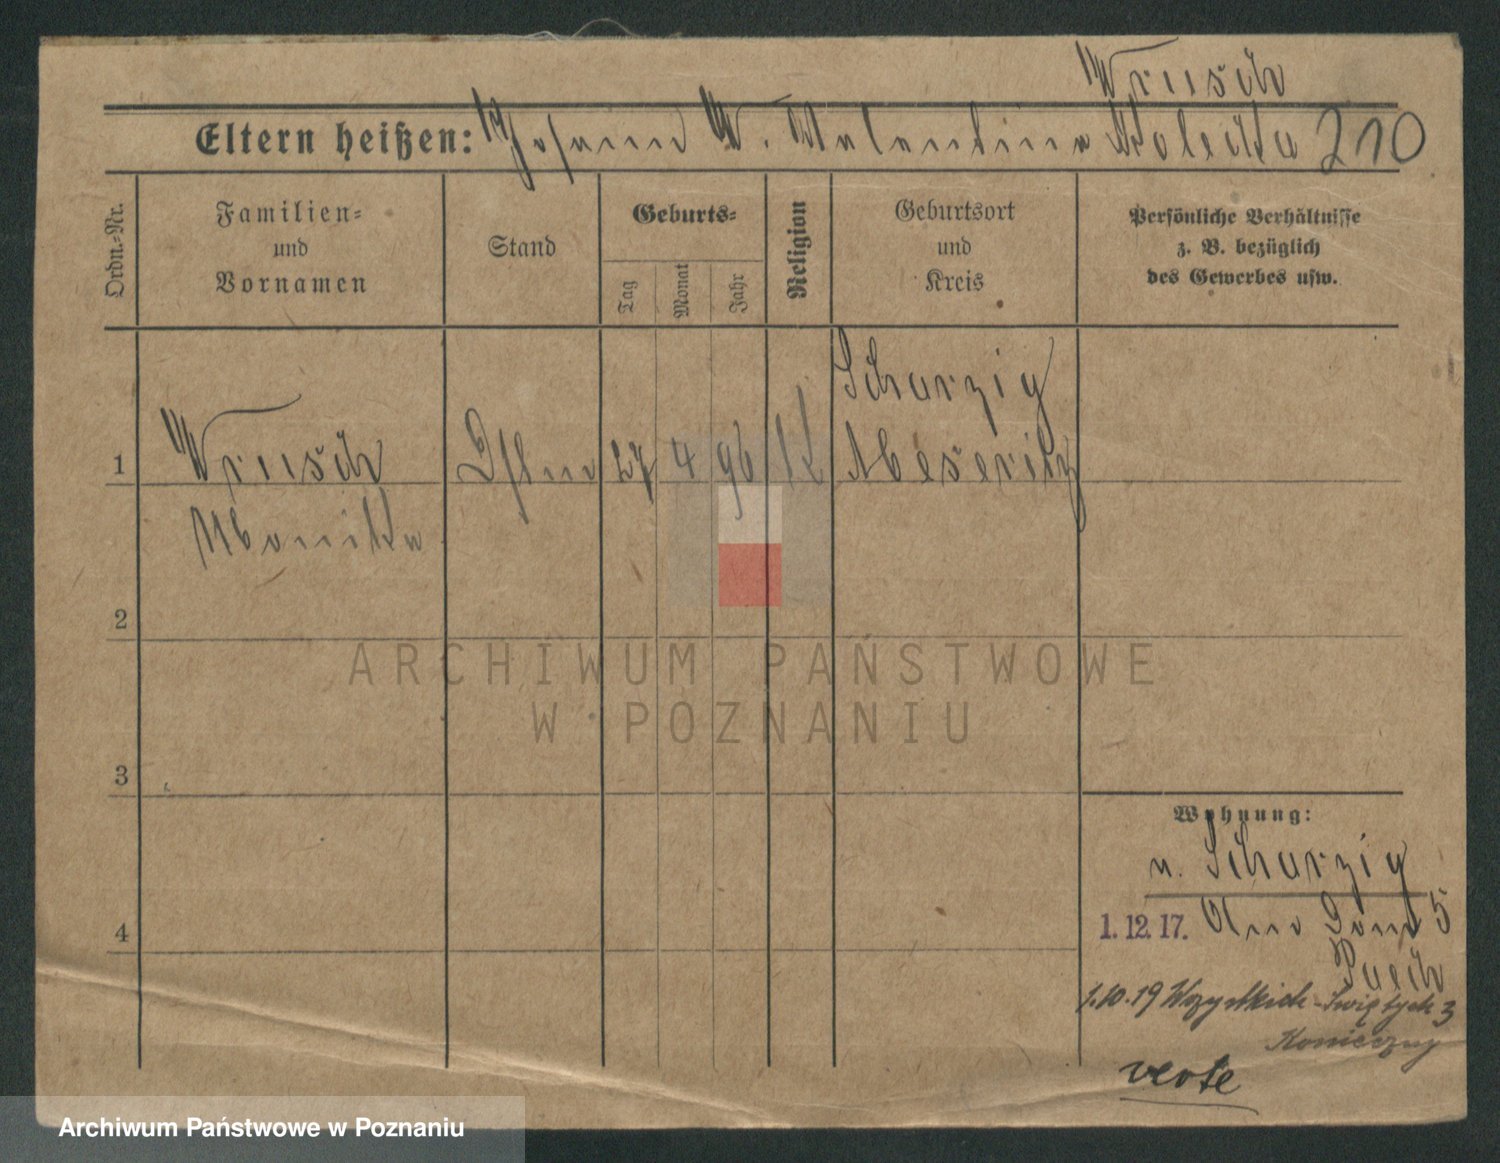 Wrusch
Eltern heißen: Johann W. Valentina Koleska 210
Ordn.-Nr.
Familien-
und
Vornamen
Stand
Geburts-
Tag
Monat
Jahr
Religion
Geburtsort
und
Kreis
Persönliche Verhältnisse
z. B. bezüglich
des Gewerbes usw.
Schurzig
1 Wrusch 27 4 96 k Meseritz
Monika
2
3
4
Wohnung:
n. Schurzig
1. 12. 17. Am Dom 5
1.10.19 Wszystkich Świętych 3
Konieczny
verte
ARCHIWUM PAŃSTWOWE
W POZNANIU
Archiwum Państwowe w Poznaniu